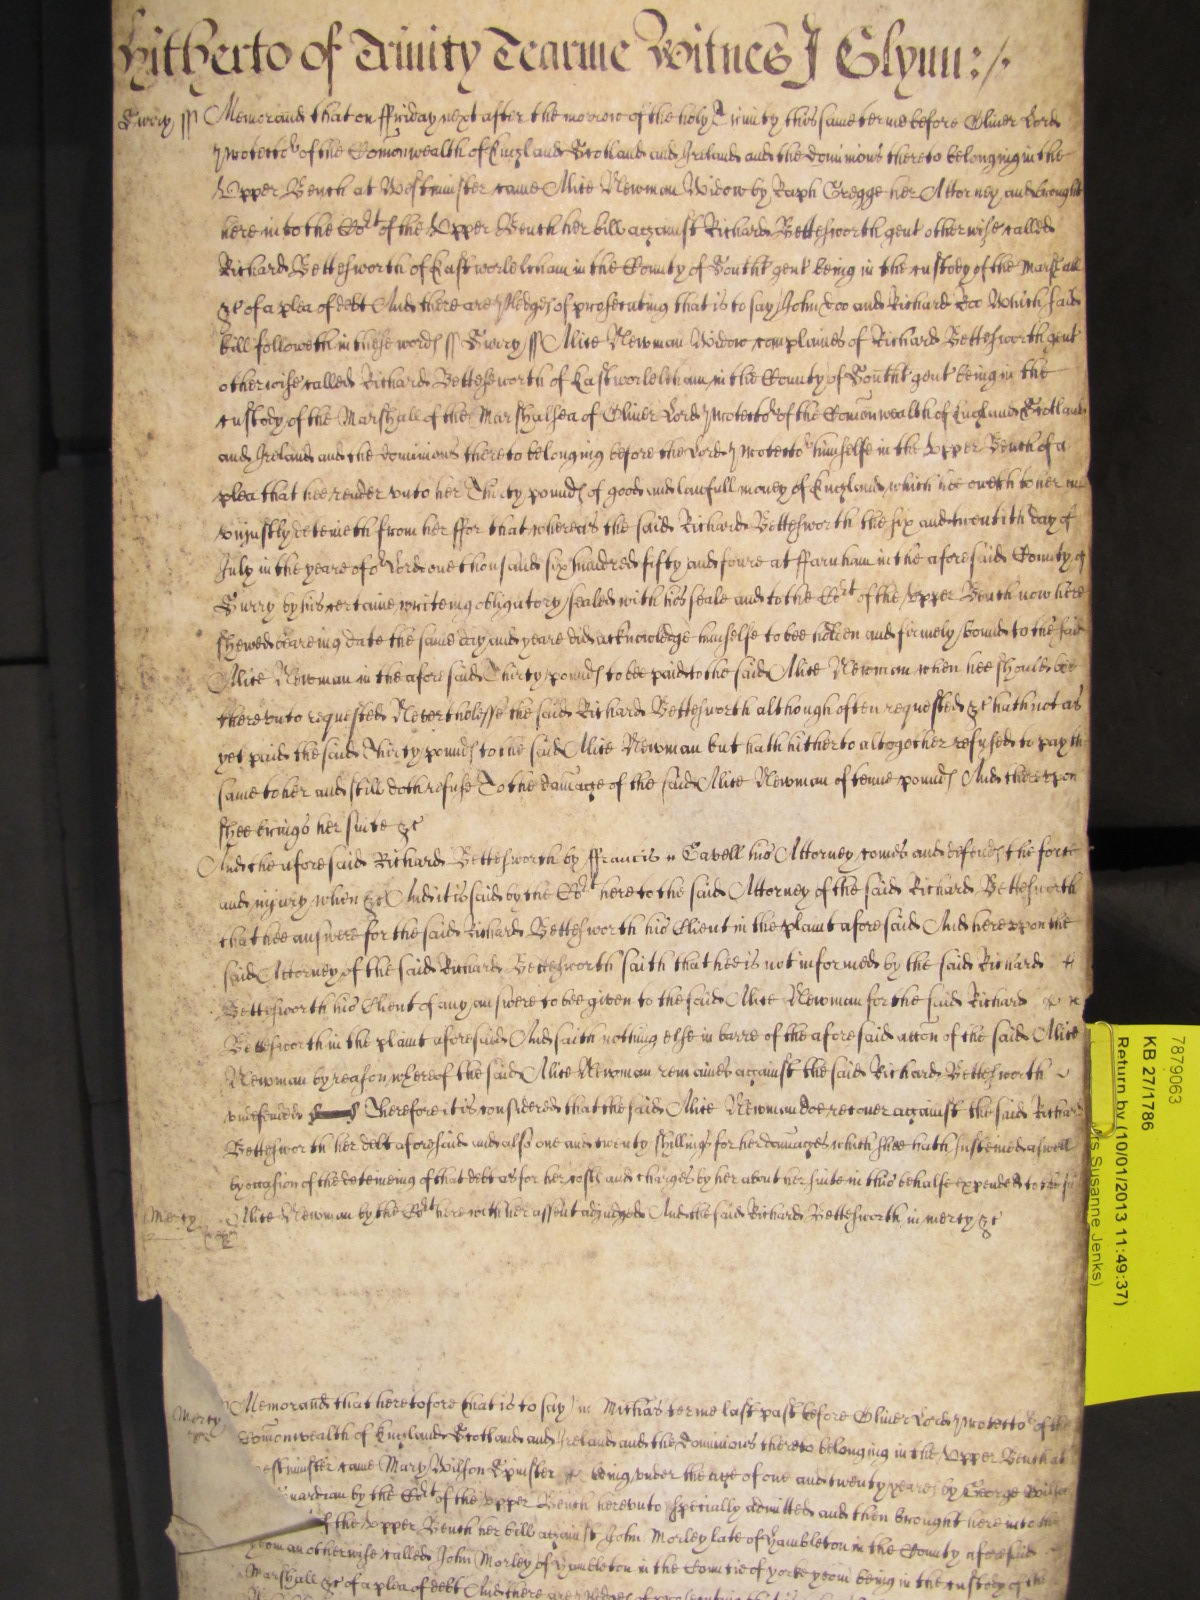 hitherto of Trinity Tearme Witnes J Glynn:/.
Surry ss Memorand that on ffriday next after the morrow of the holy Trinity this same terme before Oliver Lord
Protector of the Comonwealth of England Scotland and Ireland and the dominions thereto belonging in the
Upper Bench at Westminster came Alice Newman Widow by Raph Gregge her Attorney and brought
here into the Cort of the Upper Bench her bill against Richard Bettesworth gent otherwise called
Richard Bettesworth of Eastworleham in the County of Southt gent being in the custody of the Marshall
&c of a plea of debt And there are pledges of prosecuting that is to say John Doo and Richard Roo Which said
bill followeth in these words ss Surry ss Alice Newman Widow complaines of Richard Bettesworth gent
otherwise called Richard Bettesworth of Eastworleham in the County of Southt gent being in the
custody of the Marshall of the Marshalsea of Oliver Lord Protector of the Comonwealth of England Scotland
and Ireland and the dominions thereto belonging before the Lord Protector himselfe in the Upper Bench of a
plea that hee render unto her Thirty pounds of good and lawfull money of England which hee oweth to her and
uniustly deteineth from her ffor that whereas the said Richard Bettesworth the six and twentith day of
July in the yeare of or Lord one thousand six hundred fifty and foure at ffarnham in the aforesaid County of
Surry by his certaine writeing obligatory sealed with his seale and to the Cort of the Upper Bench now here
shewed beareing date the same day and yeare did acknowledge himselfe to bee holden and firmely bound to the said
Alice Newman in the aforesaid Thirty pounds to bee paid to the said Alice Newman when hee should bee
thereunto requested Neverthelesse the said Richard Bettesworth although often requested &c hath not as
yet paid the said Thirty pounds to the said Alice Newman but hath hitherto altogether refused to pay the
same to her and still doth refuse To the damage of the said Alice Newman of tenne pounds And thereupon
shee brings her suite &c
And the aforesaid Richard Bettesworth by ffrancis Cavell his Attorney comes and defends the force
and iniury when &c And it is said by the Cort here to the said Attorney of the said Richard Bettesworth
that hee answere for the said Richard Bettesworth his Client in the plaint aforesaid And hereupon the
said Attorney of the said Richard Bettesworth saith that hee is not informed by the said Richard
Bettesworth his Client of any answere to bee given to the said Alice Newman for the said Richard
Bettesworth in the plaint aforesaid And saith nothing else in barre of the aforesaid accon of the said Alice
Newman by reason whereof the said Alice Newman remaines against the said Richard Bettesworth
undefended Therefore it is considered that the said Alice Newman doe recover against the said Richard
Bettesworth her debt aforesaid and also one and twenty shillings for her damages which shee hath susteined aswell
by occasion of the deteineing of that debt as for her costs and charges by her about her suite in this behalfe expended to the said
Mercy Alice Newman by the Cort here with her assent adiudged And the said Richard Bettesworth in mercy &c
Mercy Memorand that heretofore that is to say in Michas terme last past before Oliver Lord Protector of the
Comonwealth of England Scotland and Ireland and the dominions thereto belonging in the Upper Bench at
estminster came Mary Wilson Spinster being under the age of one and twenty yeares by George Wilson
uardian by the Cort of the Upper Bench hereunto specially admitted and then brought here into the
f the Upper Bench her bill against John Morley late of Hambleton in the County aforesaid
yeoman otherwise called John Morley of Hambleton in the Countie of yorke yeom being in the custody of the
Marshall &c of a plea of debt And there are pledges of prosecuting that is
7879063
KB 27/1786
Return by (10/01/2013 11:49:37)
Susanne Jenks)